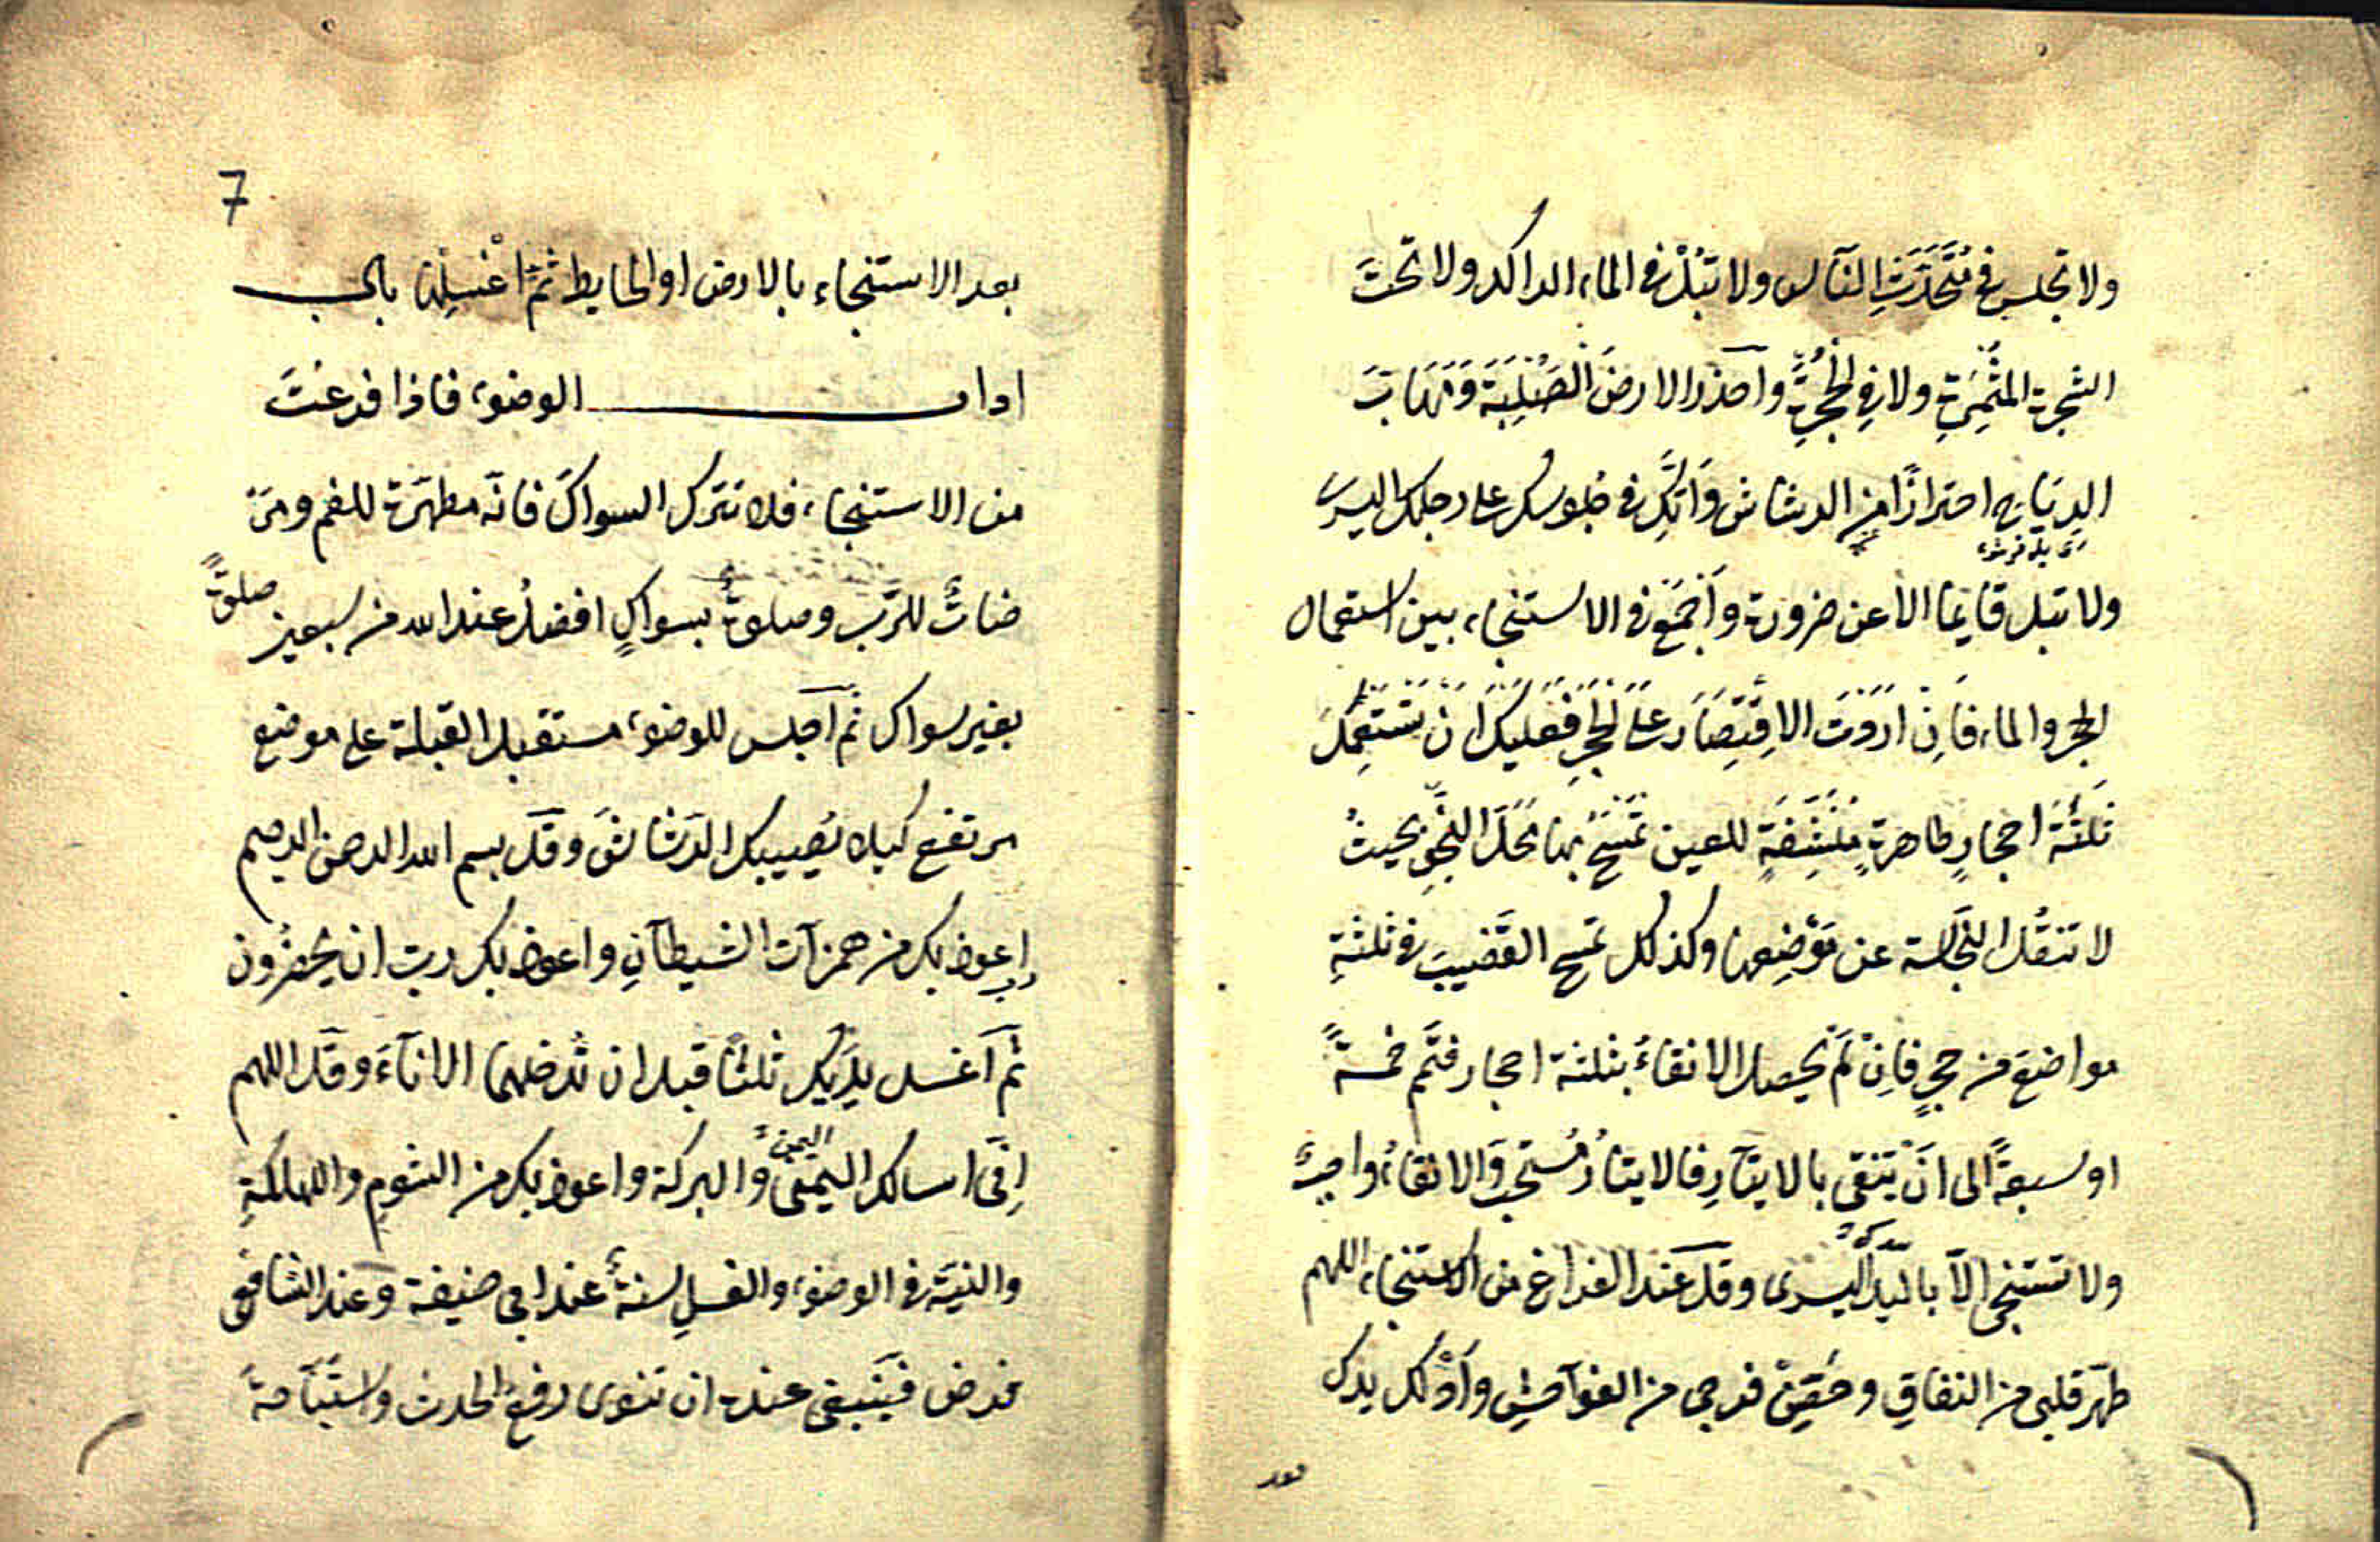 ولا تجلس في مُتَّحَدَّثِ النَّاس ولا تَبُلْ في الماء الراكد ولا تحتَ
الشجرة المثمِرةِ ولا في الجُحْرِ واحذر الارضَ الصُّلبَةَ وَمَهابَّ
الرياح احترازًا من الرشاش وَاتَّكِ في جلوسك على رجلك اليسرى
ولا تبل قايمًا الا عن ضرورة وَاجْمَع في الاستنجاء بين استعمال
الحجر والماء فَاِنْ اَرَدْتَ الاِقْتِصَارَ عَلَى الحَجَرِ فَعَلَيْكَ اَنْ تَسْتَعْمِلَ
ثَلٰثَةَ احجارٍ طاهرةٍ مُنَشِّفَةٍ للعين تَمْسَحُ بها مَحَلَّ النَّجْوِ بحيثُ
لا تنقُل النَّجاسة عن مَوْضِعِها وكذلك تمسح القَضيبَ في ثلٰثةِ
مواضعَ من حجرٍ فَاِنْ لَمْ يحصل الانقاءُ بثلٰثة احجار فتمّم خمسةً
او سبعةً الى اَنْ يَنْقى بالايتارِ فالايتارُ مُستحبٌّ وَالانقاءُ واجبٌ
ولا تستنجى اِلّا باليدِ اليسرى وقل عند الفراغ من الاستنجاء اللهم
طهّر قلبى من النفاقِ وحَصِّنْ فرجى من الفواحشِ وَادْلك يدك
بعد
7
بعد الاستنجاء بالارض او الحايط ثُمَّ اغْسِلْها باب
اداب الوضوء فاذا فرغتَ
من الاستنجاء فلا تترك السواكَ فانّه مطهرَة للفم ومَرْ
ضاتٌ للرَّبّ وصلوةٌ بسواكٍ افضلُ عند الله من سبعين صلوةً
بغير سواك ثم اجلس للوضوء مستقبل القبلة على موضع
مرتفع كيلا يُصيبك الرَشاشَ وقل بسم الله الرحمن الرحيم
رب اعوذ بك من همزات الشيطانِ واعوذ بك ربّ ان يحضُرون
ثم اغسل يدَيك ثلٰثًا قبل ان تُدخلهما الاناءَ وقل اللهم
اِنّى اسالك اليُمْنَ وَالبركة واعوذ بك من الشوم والهلكةِ
اليمن
والنيّة في الوضوء والغسلِ سنةٌ عند ابى حنيفة وعند الشافعى
فرض فينبغى عنده ان تنوى رفعَ الحدث واستباحةَ